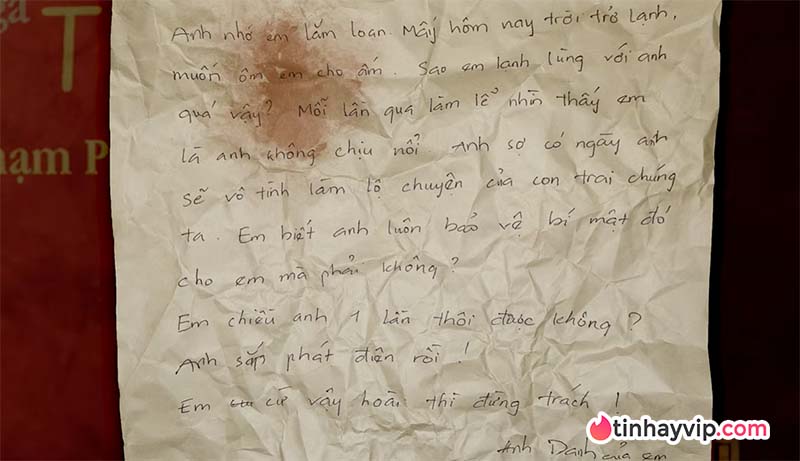 ga
T
hạm P
Anh nhớ em lắm loan. Mấy hôm nay trời trở lạnh,
muốn ôm em cho ấm. Sao em lạnh lùng với anh
quá vậy? Mỗi lần qua làm lể nhìn thấy em
là anh không chịu nổi. Anh sợ có ngày anh
sẽ vô tình làm lộ chuyện của con trai chúng
ta. Em biết anh luôn bảo vệ bí mật đó
cho em mà phải không?
Em chiều anh 1 lần thôi được không?
Anh sắp phát điên rồi!
Em cứ vậy hoài thì đừng trách!
Anh Danh của em
tinhayvip.com